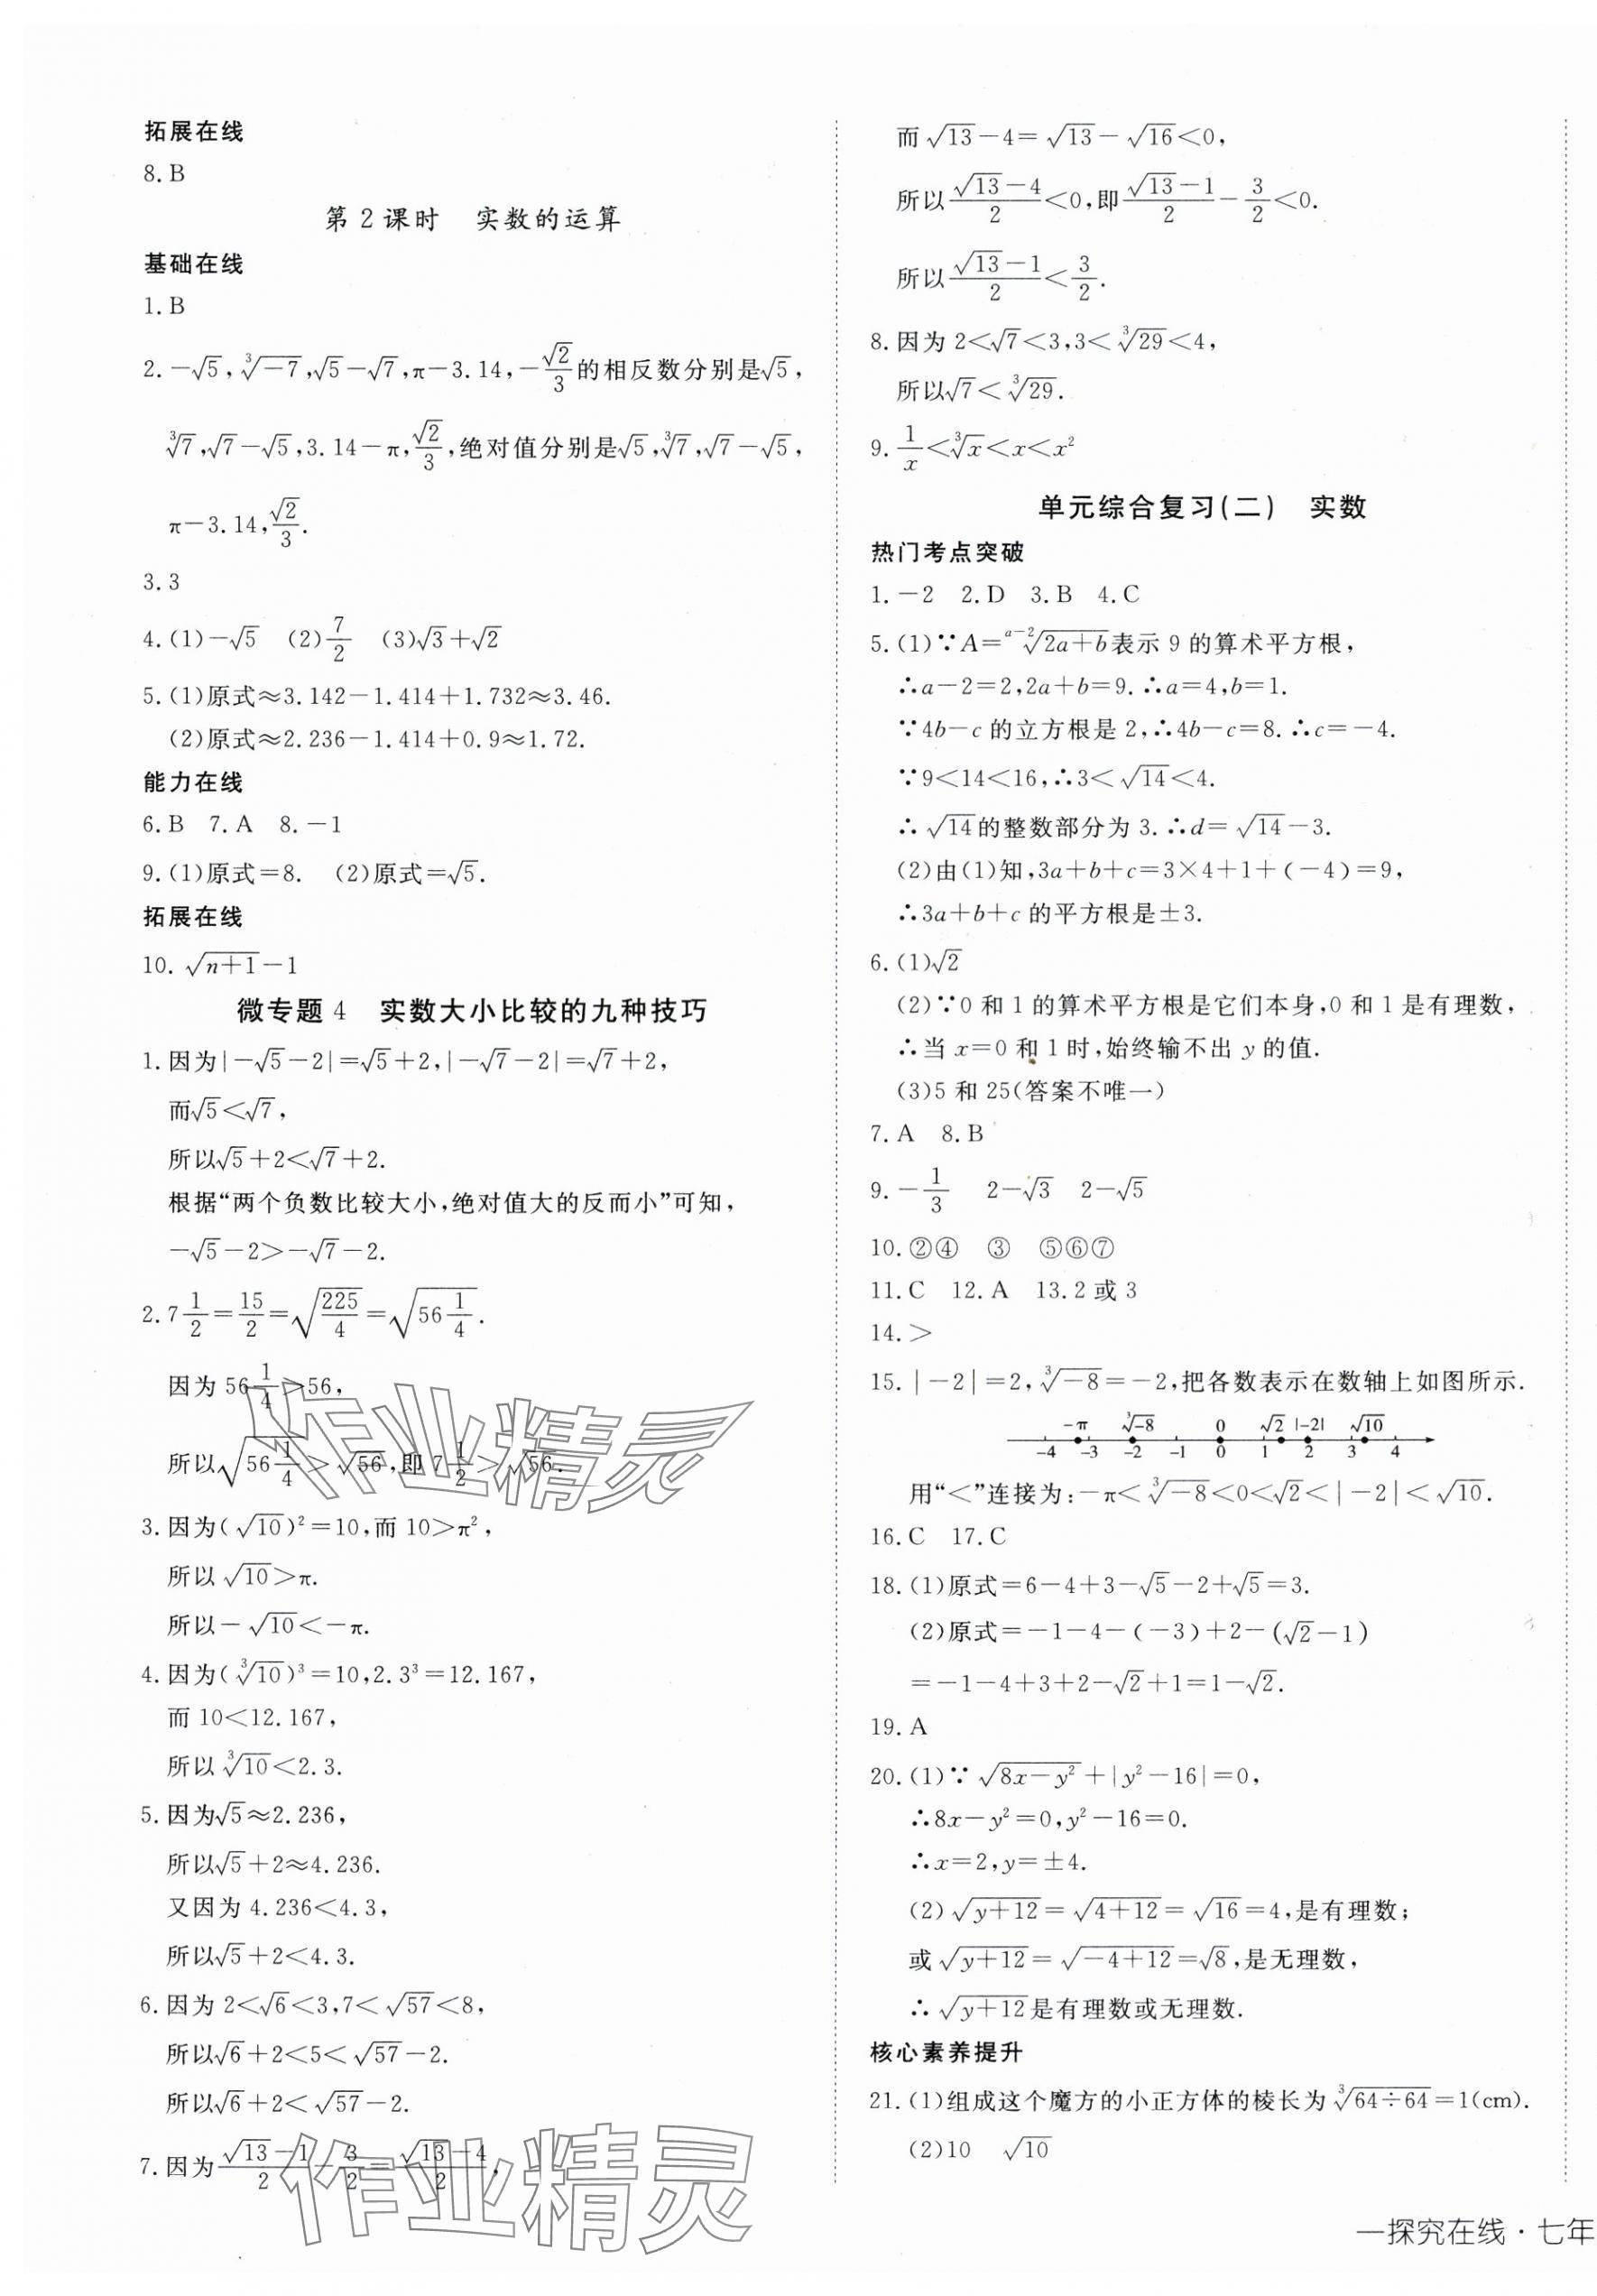 拓展在线
8.B
第2课时 实数的运算
基础在线
1.B
2.-√5,∛-7,√5-√7,π-3.14,-√2/3的相反数分别是√5,
∛7,√7-√5,3.14-π,√2/3,绝对值分别是√5,∛7,√7-√5,
π-3.14,√2/3.
3.3
4.(1)-√5 (2)7/2 (3)√3+√2
5.(1)原式≈3.142-1.414+1.732≈3.46.
(2)原式≈2.236-1.414+0.9≈1.72.
能力在线
6.B 7.A 8.-1
9.(1)原式=8. (2)原式=√5.
拓展在线
10.√(n+1)-1
微专题4 实数大小比较的九种技巧
1.因为|-√5-2|=√5+2,|-√7-2|=√7+2,
而√5<√7,
所以√5+2<√7+2.
根据“两个负数比较大小,绝对值大的反而小”可知,
-√5-2>-√7-2.
2.7 1/2=15/2=√(225/4)=√(56 1/4).
因为56 1/4>56,
所以√(56 1/4)>√56,即7 1/2>√56.
3.因为(√10)²=10,而10>π²,
所以√10>π.
所以-√10<-π.
4.因为(∛10)³=10,2.3³=12.167,
而10<12.167,
所以∛10<2.3.
5.因为√5≈2.236,
所以√5+2≈4.236.
又因为4.236<4.3,
所以√5+2<4.3.
6.因为2<√6<3,7<√57<8,
所以√6+2<5<√57-2.
所以√6+2<√57-2.
7.因为(√13-1)/2-3/2=(√13-4)/2,
而√13-4=√13-√16<0,
所以(√13-4)/2<0,即(√13-1)/2-3/2<0.
所以(√13-1)/2<3/2.
8.因为2<√7<3,3<∛29<4,
所以√7<∛29.
9.1/x<∛x<x<x²
单元综合复习(二) 实数
热门考点突破
1.-2 2.D 3.B 4.C
5.(1)∵A=ᵃ⁻²√(2a+b)表示9的算术平方根,
∴a-2=2,2a+b=9.∴a=4,b=1.
∵4b-c的立方根是2,∴4b-c=8.∴c=-4.
∵9<14<16,∴3<√14<4.
∴√14的整数部分为3.∴d=√14-3.
(2)由(1)知,3a+b+c=3×4+1+(-4)=9,
∴3a+b+c的平方根是±3.
6.(1)√2
(2)∵0和1的算术平方根是它们本身,0和1是有理数,
∴当x=0和1时,始终输不出y的值.
(3)5和25(答案不唯一)
7.A 8.B
9.-1/3 2-√3 2-√5
10.②④ ③ ⑤⑥⑦
11.C 12.A 13.2或3
14.>
15.|-2|=2,∛-8=-2,把各数表示在数轴上如图所示.
-π ∛-8 0 √2 |-2| √10
-4 -3 -2 -1 0 1 2 3 4
用“<”连接为:-π<∛-8<0<√2<|-2|<√10.
16.C 17.C
18.(1)原式=6-4+3-√5-2+√5=3.
(2)原式=-1-4-(-3)+2-(√2-1)
=-1-4+3+2-√2+1=1-√2.
19.A
20.(1)∵√(8x-y²)+|y²-16|=0,
∴8x-y²=0,y²-16=0.
∴x=2,y=±4.
(2)√(y+12)=√(4+12)=√16=4,是有理数;
或√(y+12)=√(-4+12)=√8,是无理数,
∴√(y+12)是有理数或无理数.
核心素养提升
21.(1)组成这个魔方的小正方体的棱长为∛(64÷64)=1(cm).
(2)10 √10
—探究在线·七年
作业精灵
作业精灵